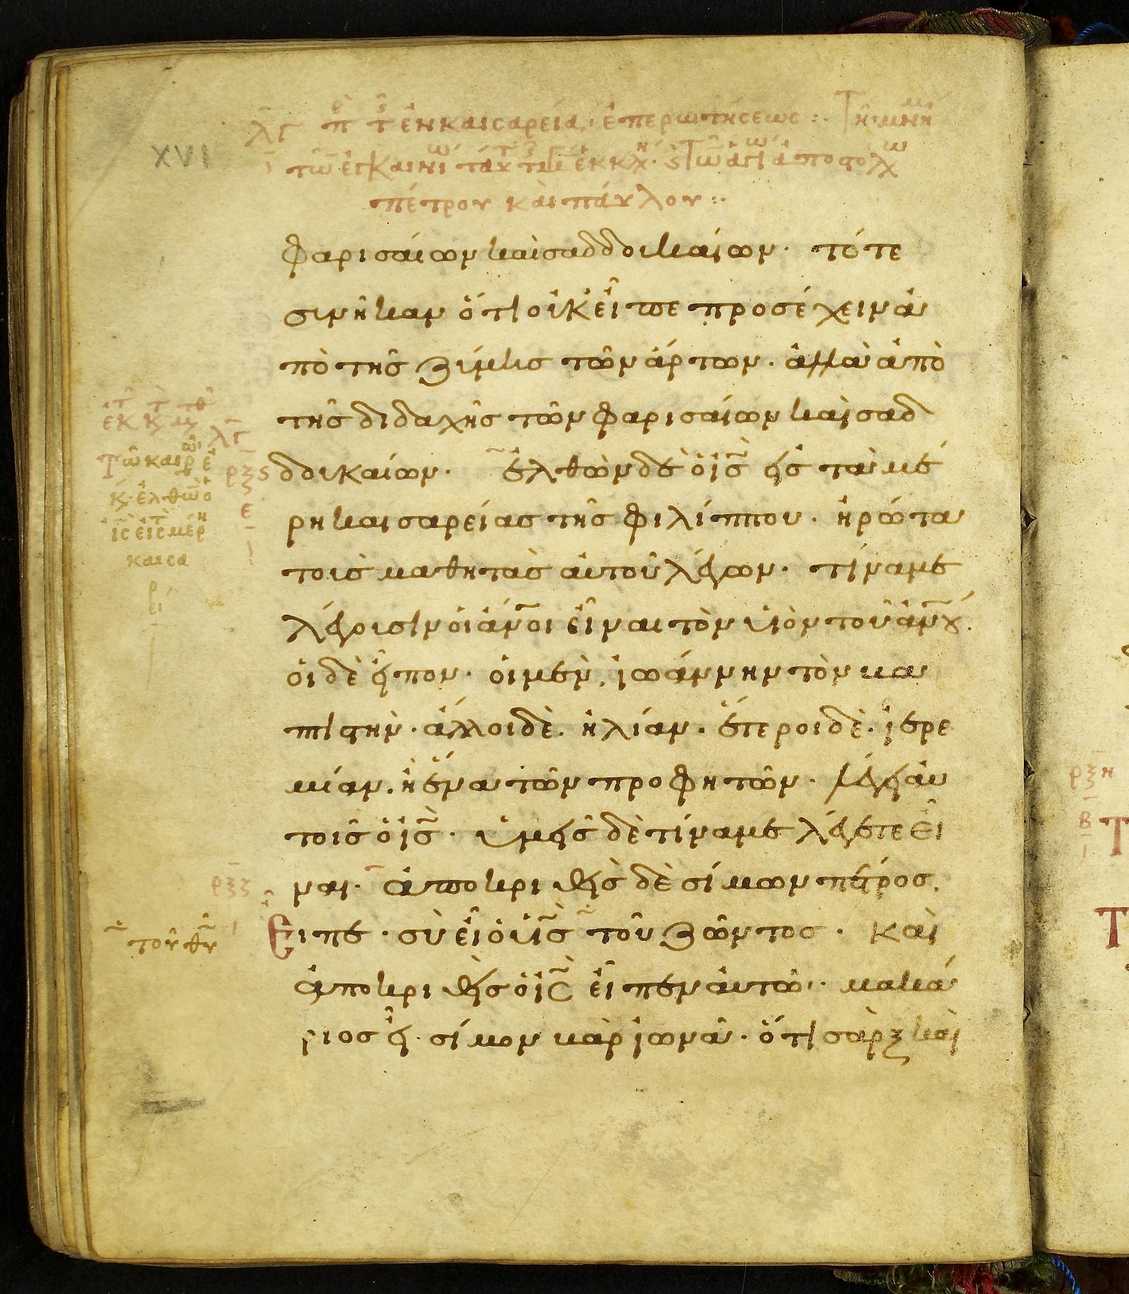 XVI
λγ π τ ἐν καισαρεία· ἐπερωτήσεως :· Τῆ
τῶ ἐγκαινι ἐκκ
πέτρου καὶ παύλου :·
φαρισαίων καὶ σαδδουκαίων· τότε
συνῆκαν ὅτι οὐκ εἶπε προσέχειν ἀ
πὸ τῆς ζύμης τῶν ἄρτων· ἀλλὰ ἀπὸ
τῆς διδαχῆς τῶν φαρισαίων καὶ σαδ
δουκαίων· ἐλθὼν δὲ ὁ ις εἰς τὰ μέ
ρη καισαρείας τῆς φιλίππου· ἠρώτα
τοὺς μαθητὰς αὐτοῦ λέγων· τίνα με
λέγουσιν οἱ ἄνοι εἶναι τὸν υἱὸν τοῦ ἀνου·
οἱ δὲ εἶπον· οἱ μὲν, ἰωάννην τὸν βα
πτιστὴν· ἄλλοι δὲ· ἠλίαν· ἕτεροι δὲ· ἱερε
μίαν· ἢ ἕνα τῶν προφητῶν· λέγει αὐ
τοῖς ὁ ις· ὑμεῖς δὲ τίνα με λέγετε εἶ
ναι· ἀποκριθεὶς δὲ σίμων πέτρος,
εἶπε· σὺ εἶ ὁ χς τοῦ ζῶντος· καὶ
ἀποκριθεὶς ὁ ις εἶπεν αὐτῶ· μακά
ριος εἶ· σίμον βὰρ ἰωνᾶ· ὅτι σὰρξ καὶ
λγ
ρξς
ε
κ ἐλθὼ ὁ
ις εἰς μέρ
καισα
ρξζ
τοῦ θυ
ρξη
β
Τ
Τ